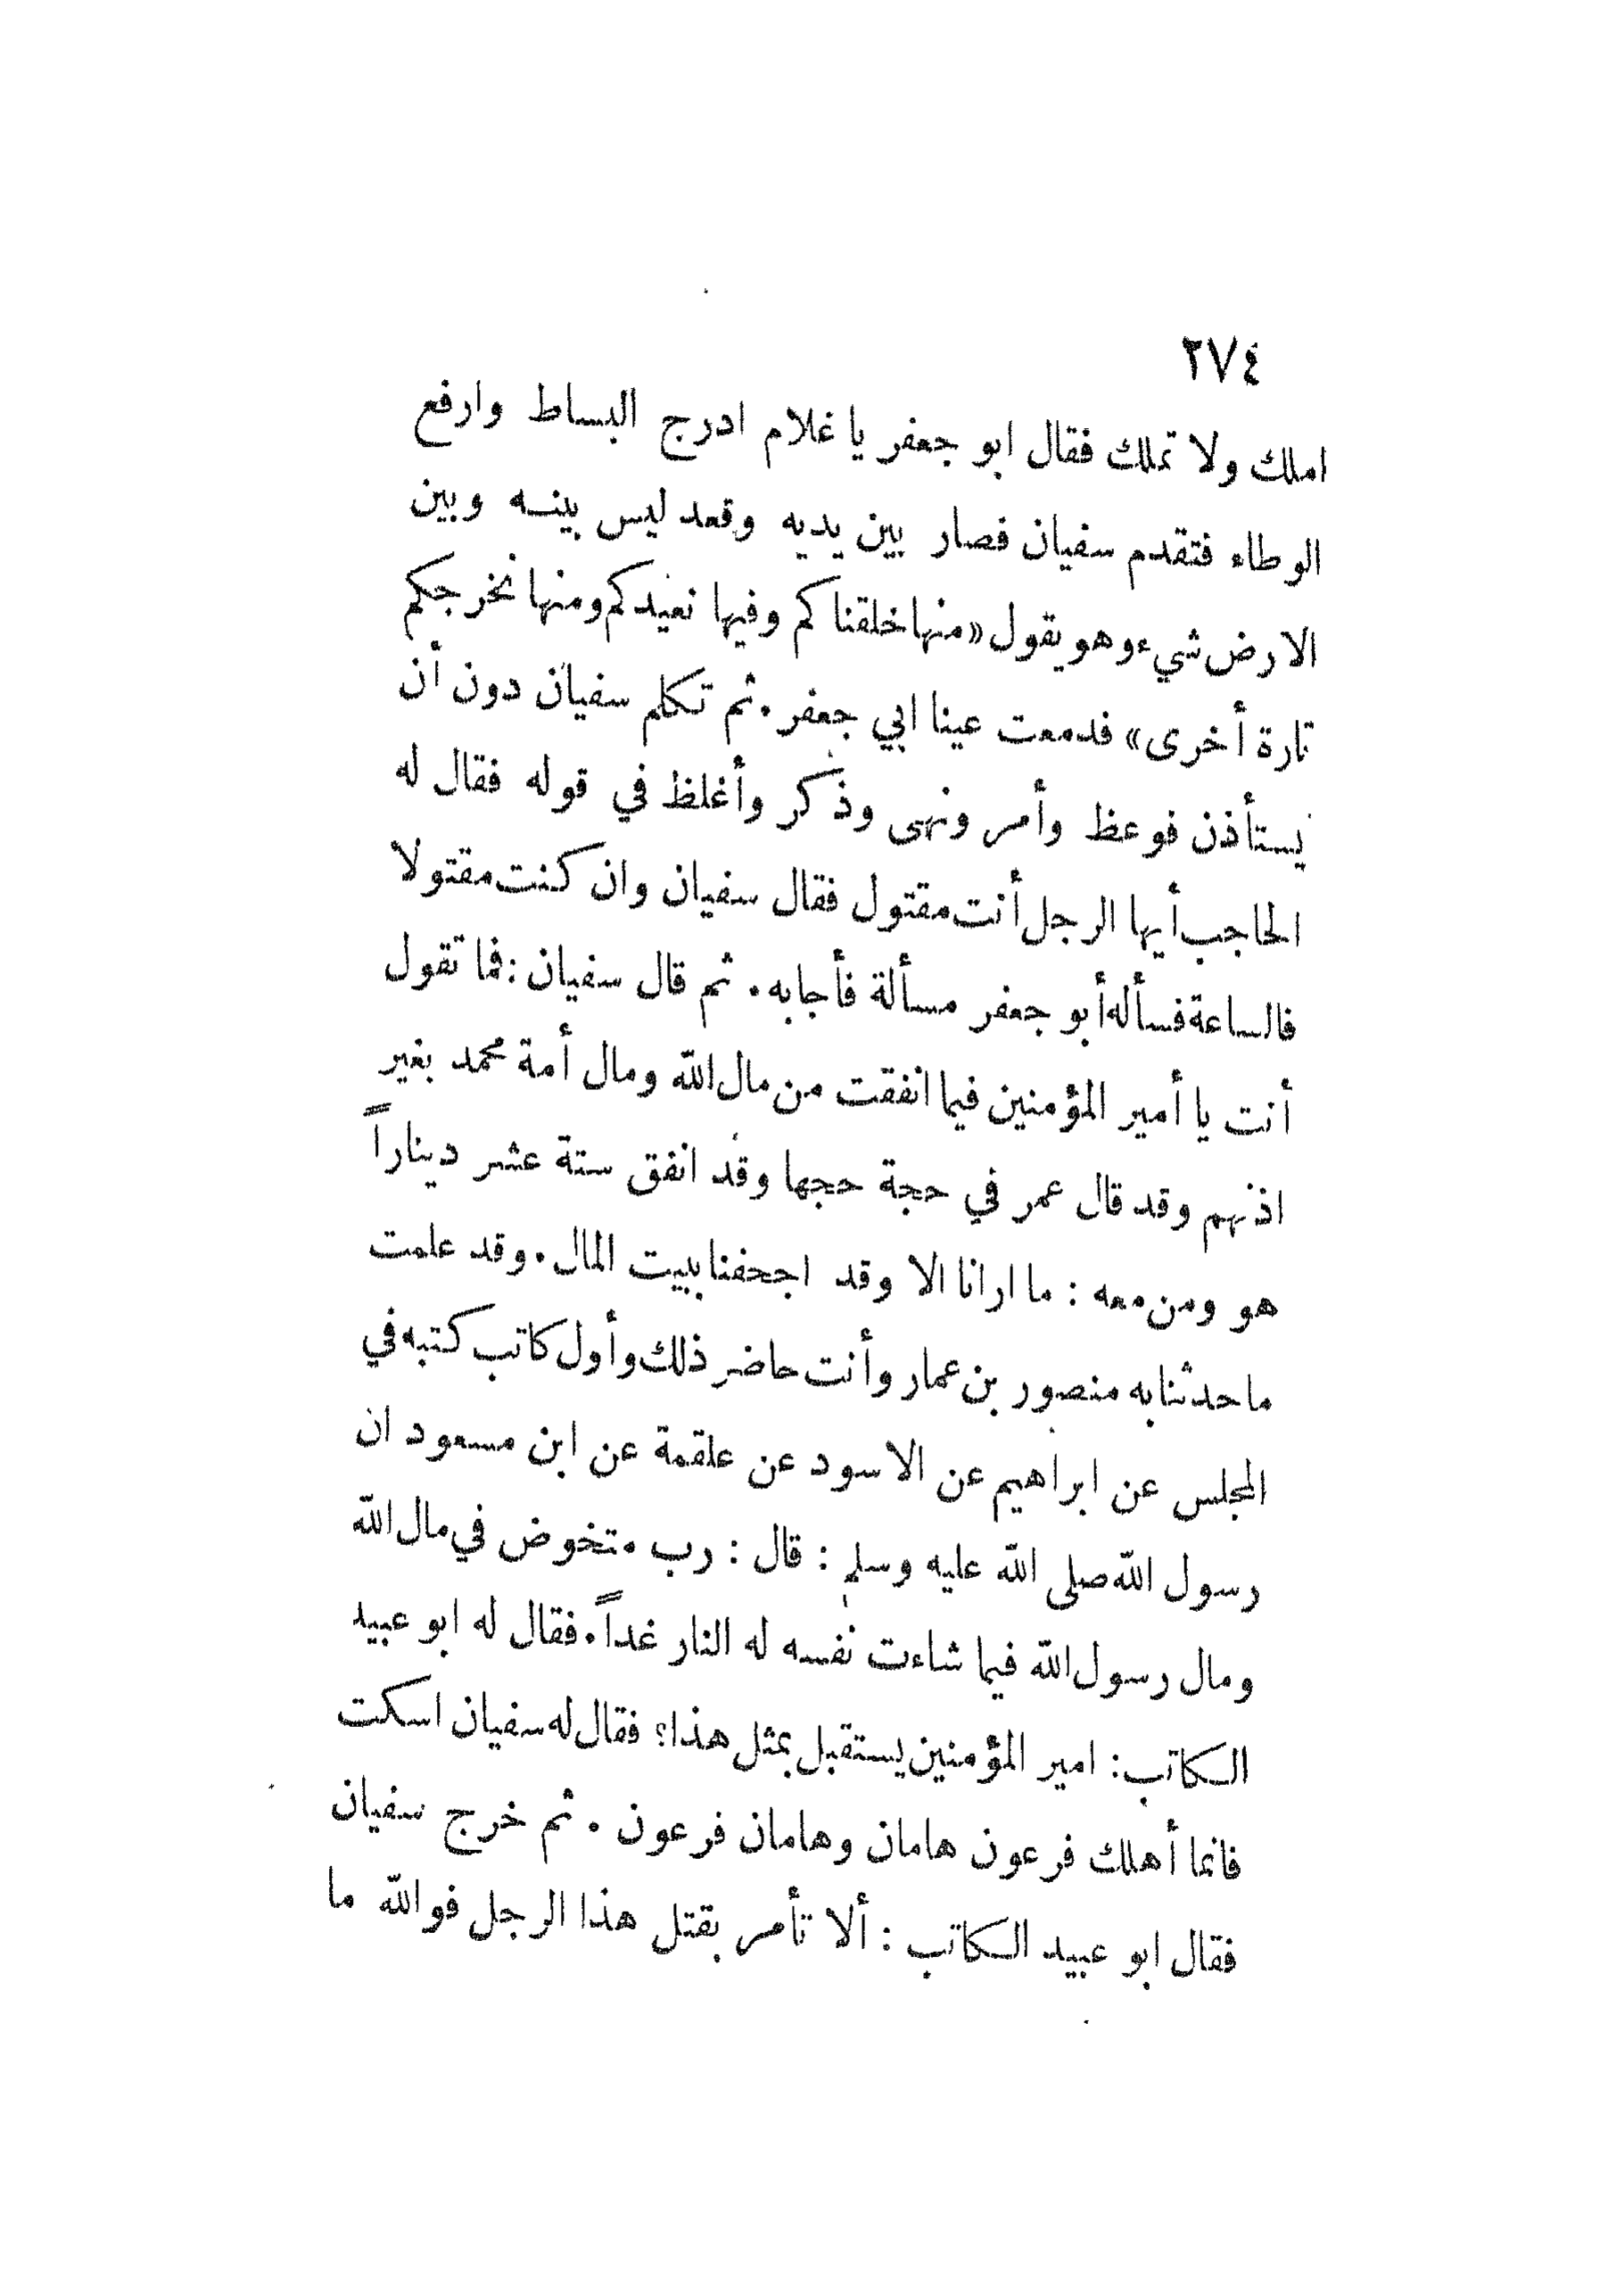 ٢٧٤
املك ولا تملك فقال ابو جعفر يا غلام ادرج البساط وارفع
الوطاء فتقدم سفيان فصار بين يديه وقعد ليس بينه وبين
الارض شيء وهو يقول «منها خلقناكم وفيها نعيدكم ومنها نخرجكم
تارة أخرى» فدمعت عينا ابي جعفر. ثم تكلم سفيان دون أن
يستأذن فوعظ وأمر ونهى وذكر وأغلظ في قوله فقال له
الحاجب أيها الرجل أنت مقتول فقال سفيان وان كنت مقتولا
فالساعة فسأله أبو جعفر مسألة فأجابه. ثم قال سفيان : فما تقول
أنت يا أمير المؤمنين فيما انفقت من مال الله ومال أمة محمد بغير
اذنهم وقد قال عمر في حجة حجها وقد انفق ستة عشر ديناراً
هو ومن معه : ما ارانا الا وقد اجحفنا ببيت المال. وقد علمت
ما حدثنا به منصور بن عمار وأنت حاضر ذلك وأول كاتب كتبه في
المجلس عن ابراهيم عن الاسود عن علقمة عن ابن مسعود ان
رسول الله صلى الله عليه وسلم : قال : رب متخوض في مال الله
ومال رسول الله فيما شاءت نفسه له النار غداً. فقال له ابو عبيد
الكاتب : امير المؤمنين يستقبل بمثل هذا؟ فقال له سفيان اسكت
فانما أهلك فرعون هامان وهامان فرعون . ثم خرج سفيان
فقال ابو عبيد الكاتب : ألا تأمر بقتل هذا الرجل فوالله ما